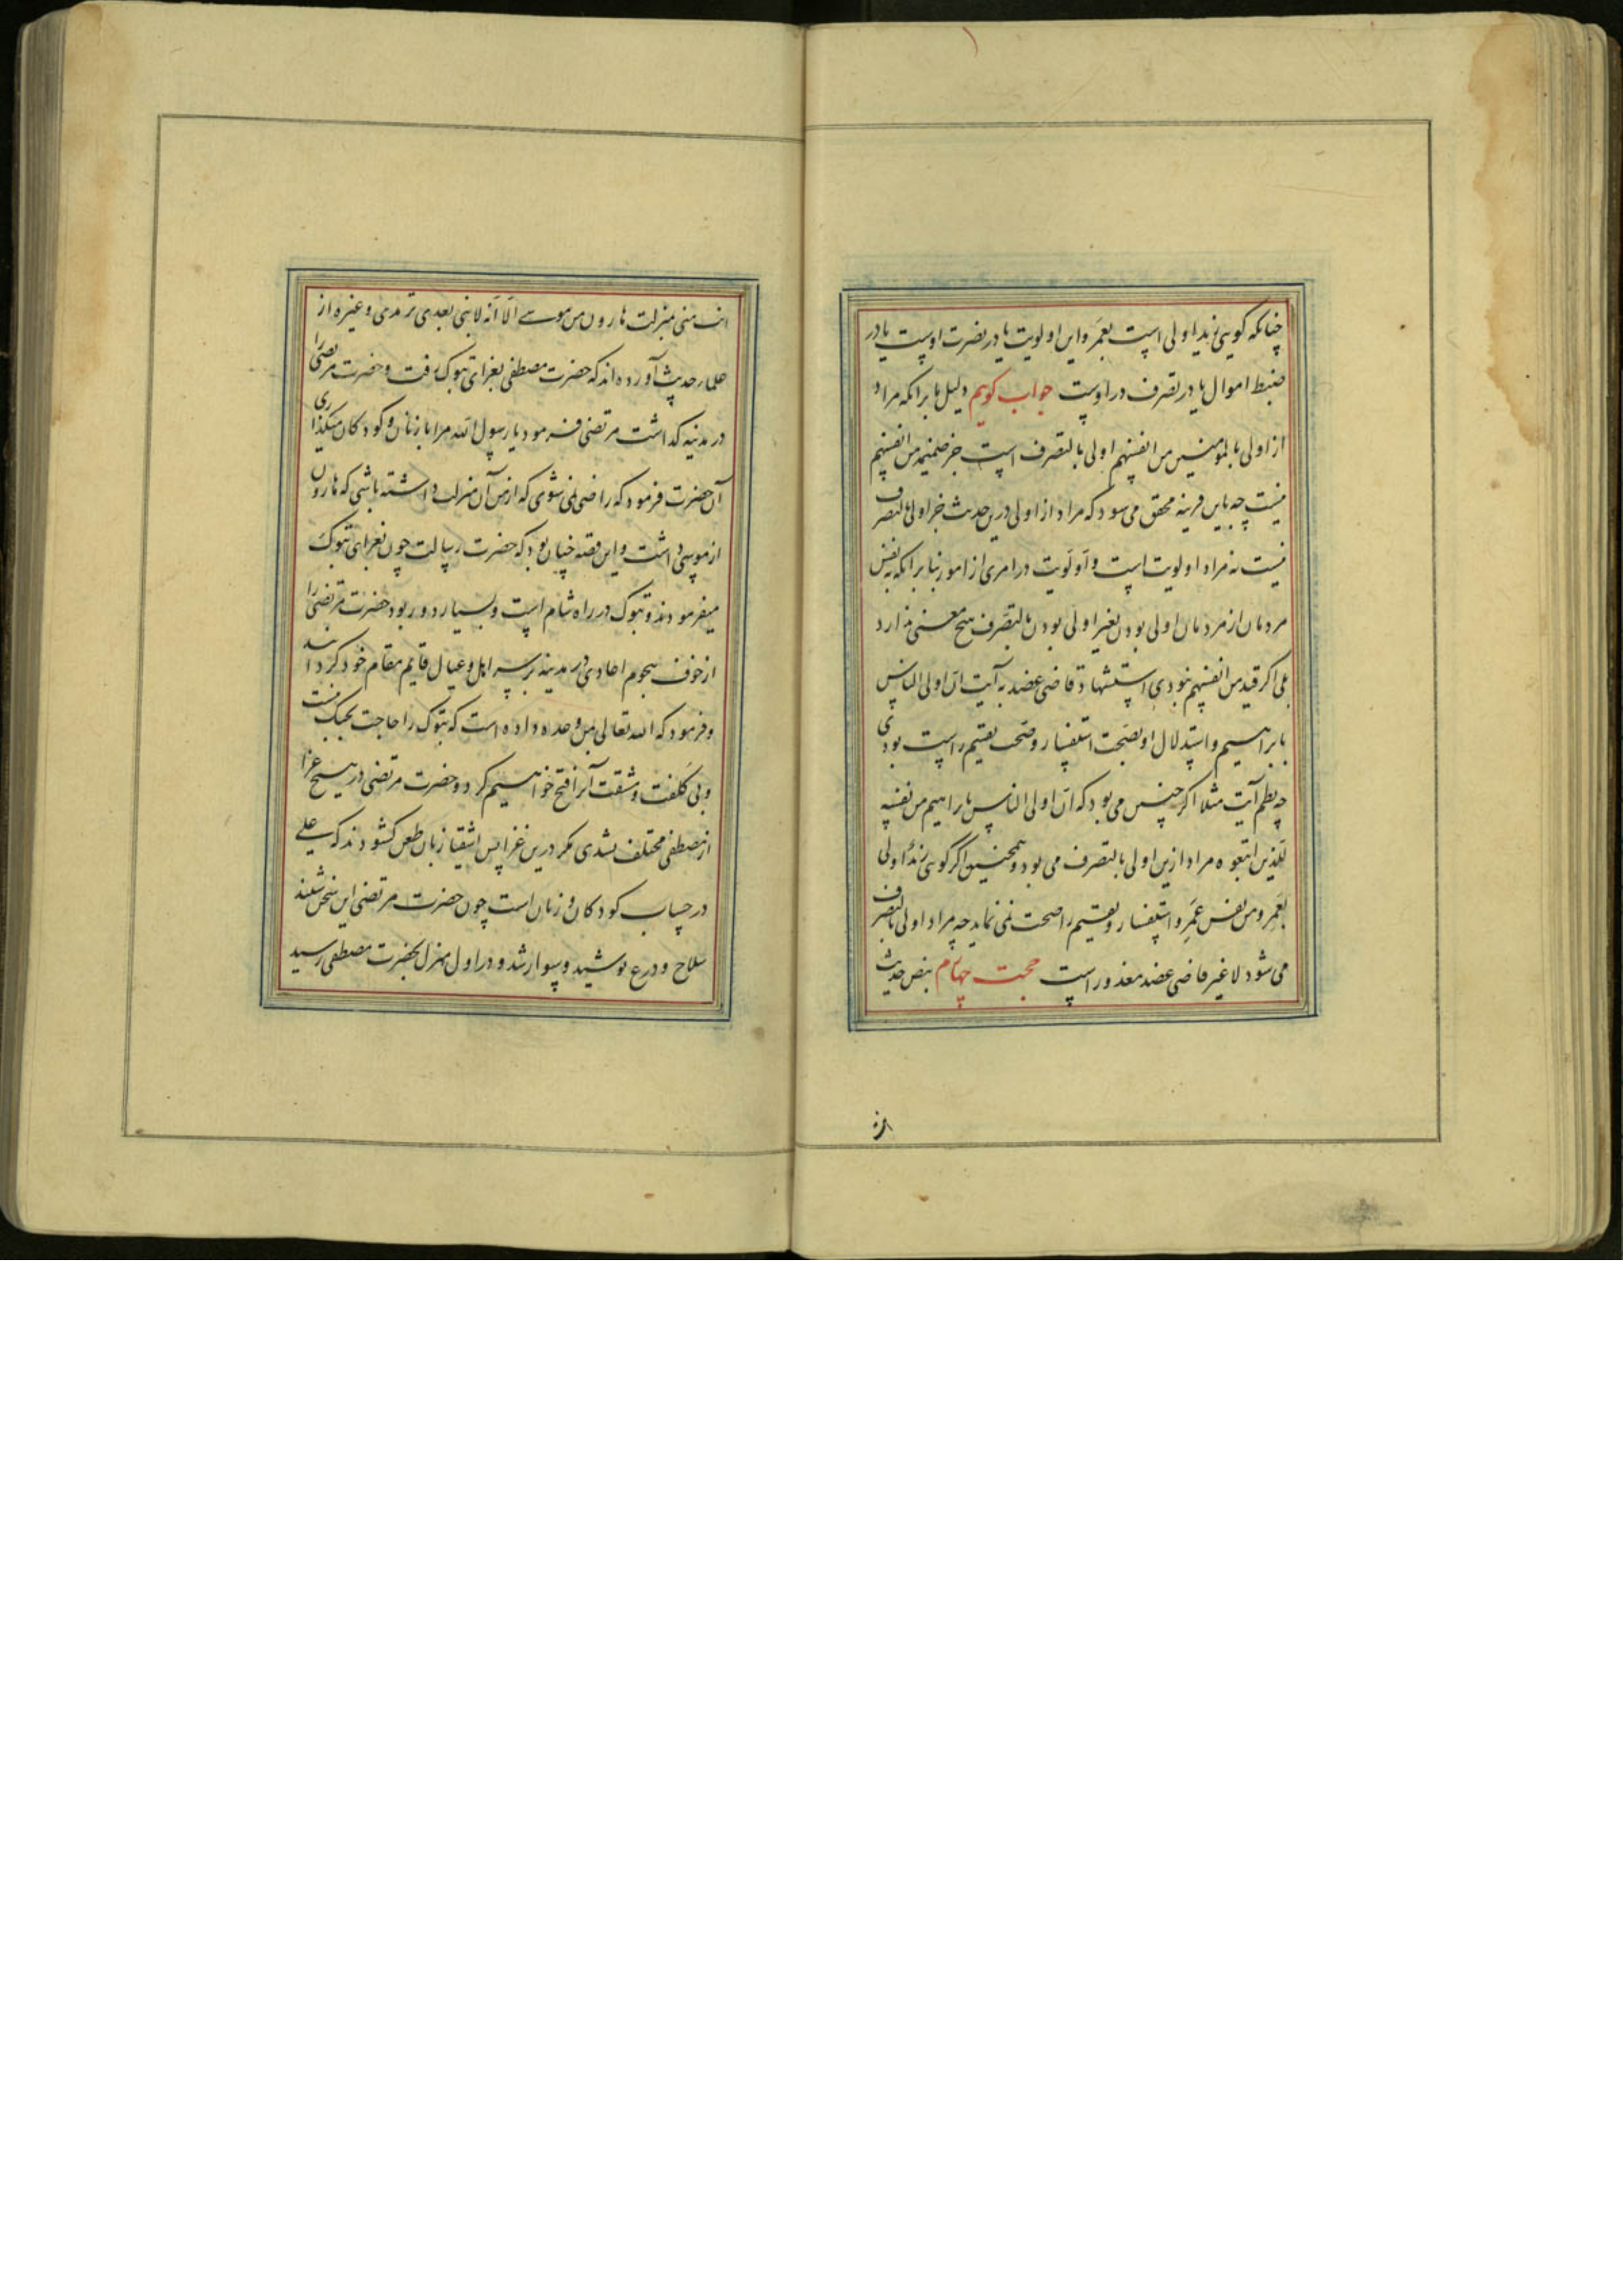 چنانکه گویی زید اولی است بعمر و این اولویت یا در نصرت اوست یا در
ضبط اموال یا در تصرف در اوست جواب گویم دلیل ما بر انکه مراد
از اولی بالمومنین من انفسهم اولی بالتصرف است جز ضمیمه من انفسهم
نیست چه باین قرینه محقق می شود که مراد از اولی درین حدیث جز اولی بالتصرف
نیست نه مراد اولویت است و اولویت در امری از امور بنا بر انکه بنفس
مردمان از مردمان اولی بودن بغیر اولی بودن بالتصرف هیچ معنی ندارد
بلی اکر قید من انفسهم نبودی استشهاد قاضی عضد به آیت ان اولی الناس
بابراهیم و استدلال او بصحت استفسار و صحت تقسیم راست بودی
چه نظم آیت مثلا اکر چنین می بود که ان اولی الناس بابراهیم من نفسه
للذین اتبعوه مراد ازین اولی بالتصرف می بود و همچنین اکر گویی زید اولی
بعمر و من نفس عمر و استفسار و تقسیم را صحت نمی نماید چه مراد اولی بالتصرف
می شود لا غیر قاضی عضد معذور است حجت چهارم بنص حدیث
انت
انت منی بمنزلت هارون من موسی الا انه لا نبی بعدی ترمدی و غیره از
علمار حدیث آورده اند که حضرت مصطفی بغزای تبوک رفت و حضرت مرتضی را
در مدینه کذاشت مرتضی فرمود یا رسول الله مرا با زنان و کودکان میکذاری
آن حضرت فرمود که راضی نمی شوی که از من آن منزلت داشته باشی که هارون
از موسی داشت و این قصه چنان بود که حضرت رسالت چون بغزای تبوک
میفرمودند و تبوک در راه شام است و بسیار دور بود حضرت مرتضی را
از خوف هجوم اعادی در مدینه بر سر اهل و عیال قایم مقام خود کردانید
و فرمود که الله تعالی بمن وعده داده است که تبوک را حاجت بجنک نیست
و بی کلفت و مشقت آنرا فتح خواهیم کرد و حضرت مرتضی در هیچ غزا
از مصطفی مختلف نشدی مکر درین غزا پس اشقیا زبان طعن کشودند که علی
در حساب کودکان و زنان است چون حضرت مرتضی این سخن شنید
سلاح و درع پوشید و سوار شد و در اول منزل بحضرت مصطفی رسید